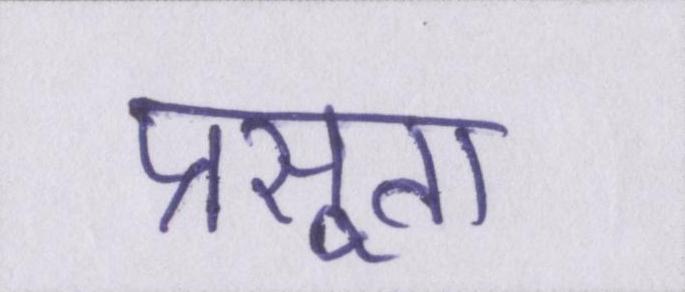 प्रसूता